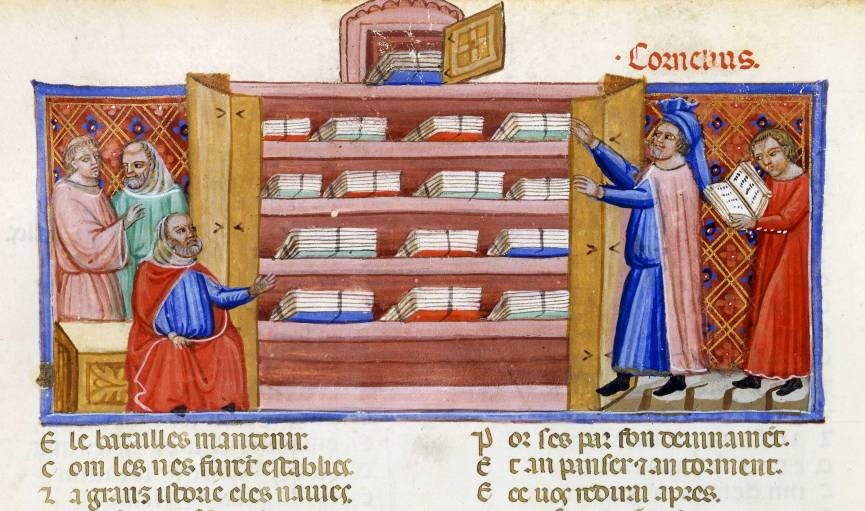 · Cornelius.
E le batailles mantenir.
C om les nes furẽt establies.
Z a granz istorie eles nauies.
P or ses par son deuinamẽt.
E t an panser ⁊ an torment.
E ce uos redirai apres.